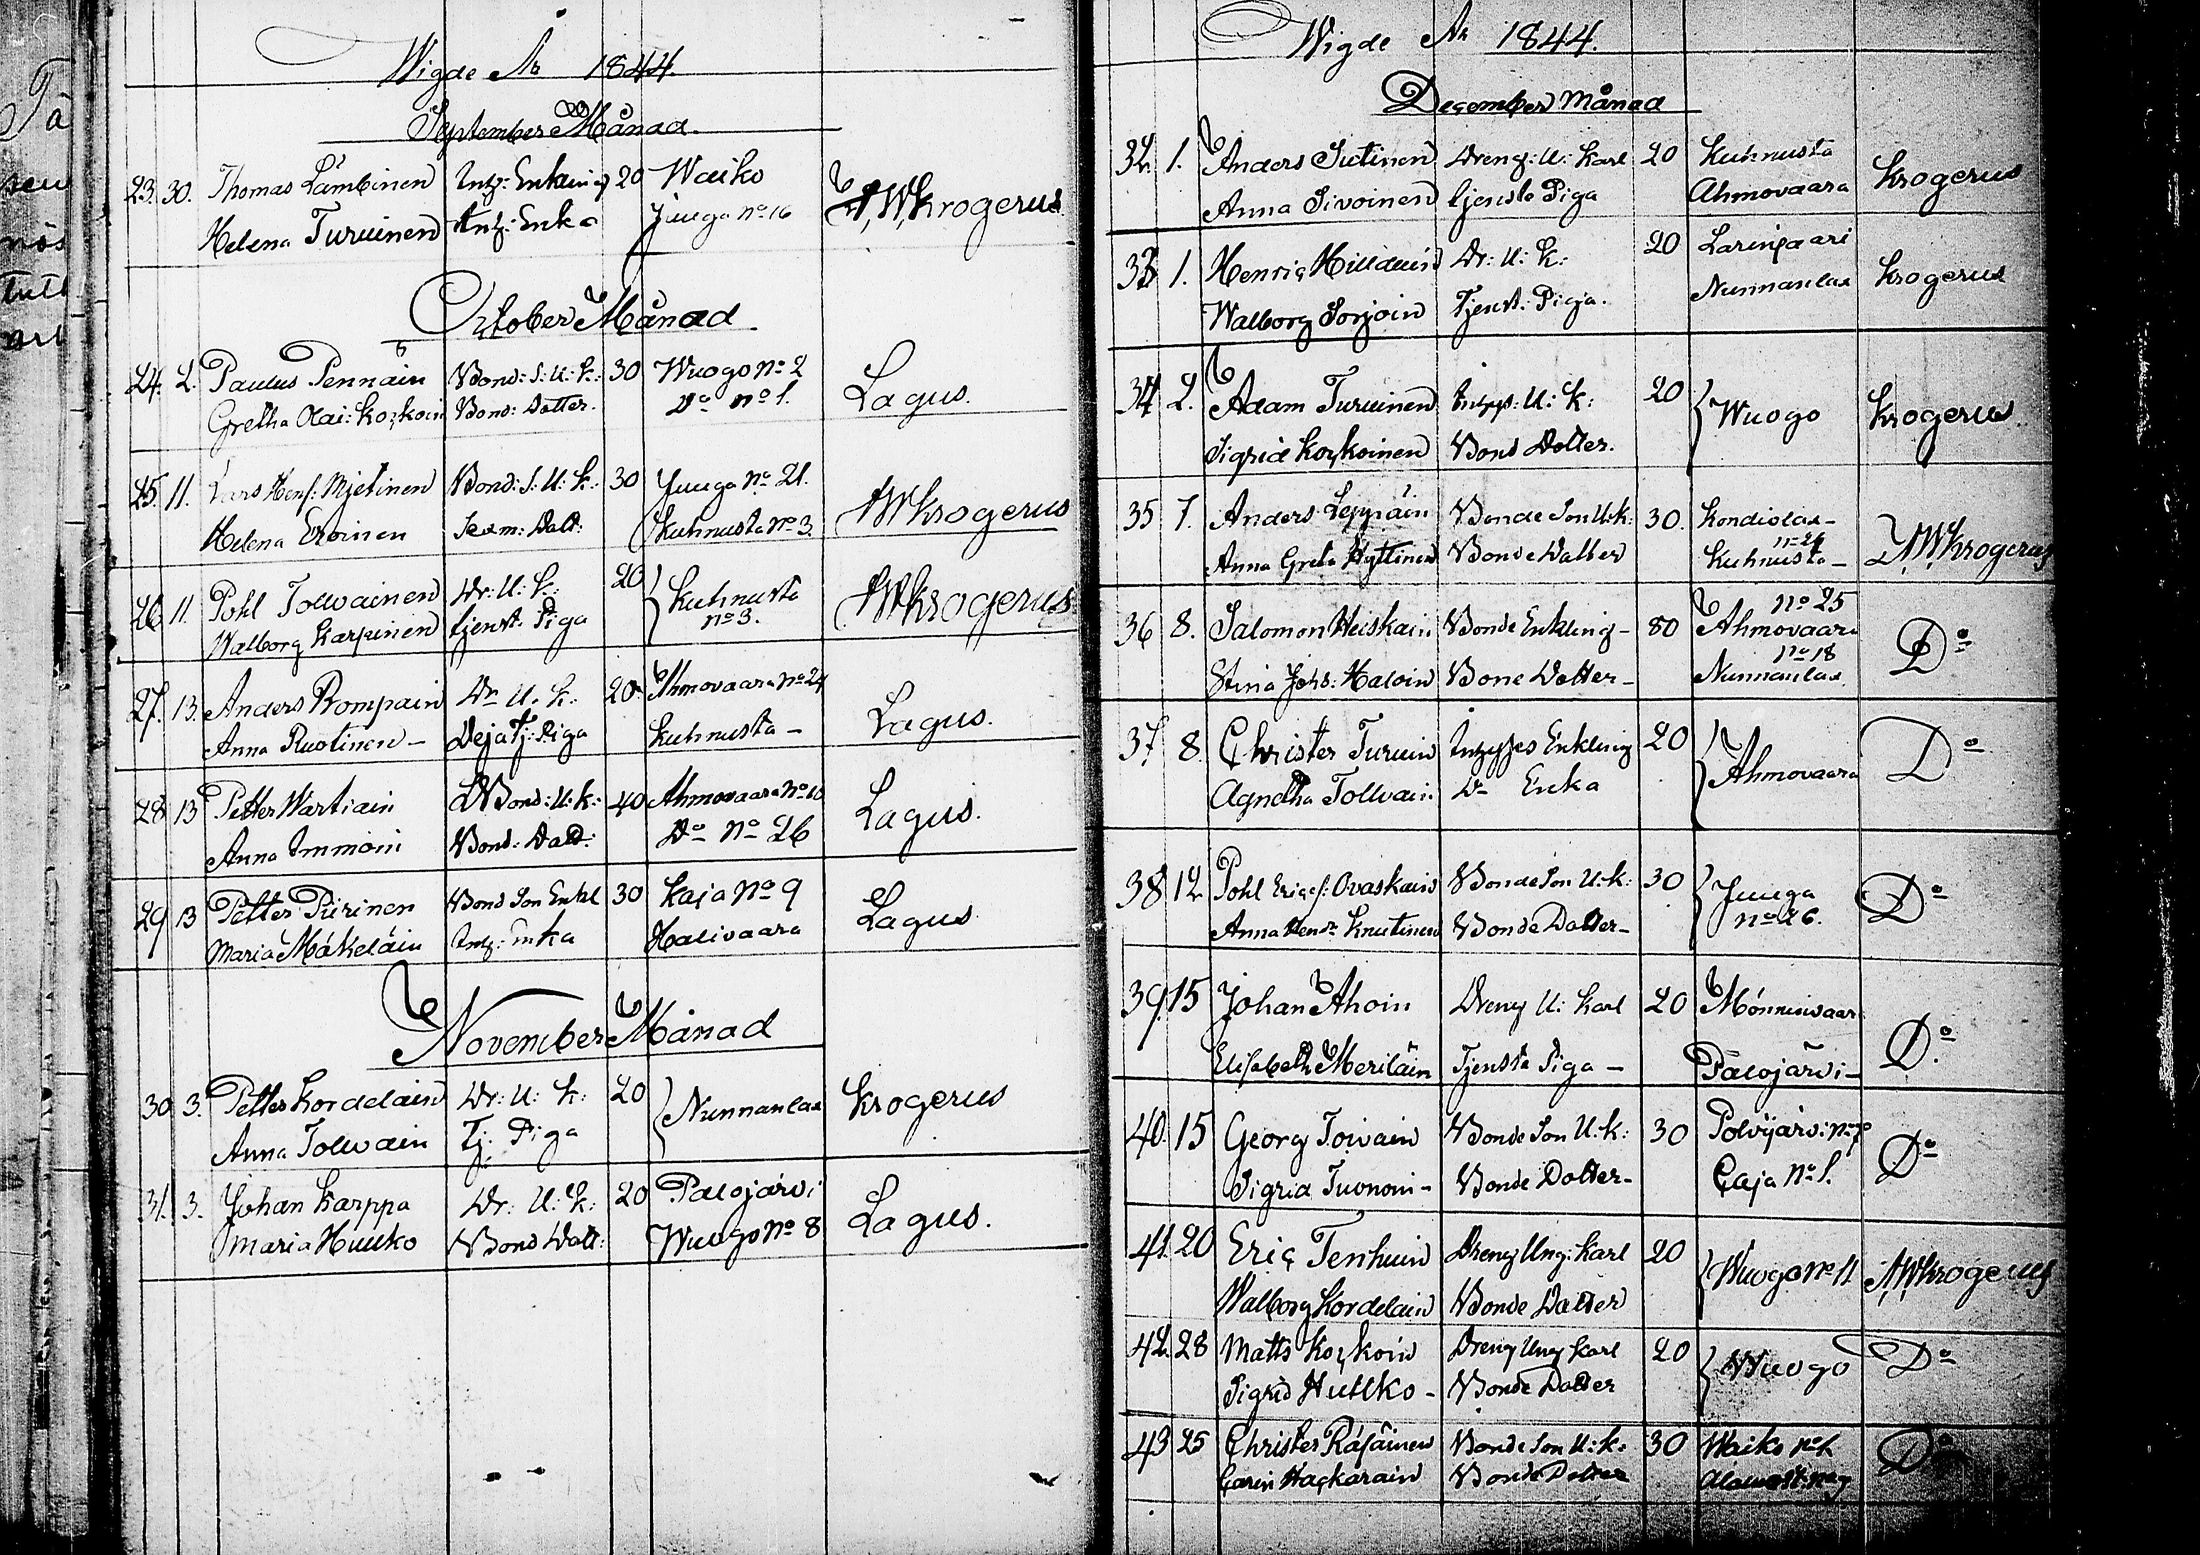 Wigde År 1844.
September Månad.
23. 30. Thomas Lämbinen Inh: Enkling 20 Waiko A,W,Krogerus
Helena Turuinen Inh: Enka Juuga no 16
October Månad
24. 2. Paulus Pennäin Bond: S: U: K: 30 Wuogo No 2 Lagus.
Gretha Olai: Kockoin Bond: Dotter. Do no 1.
25. 11. Lars Hens: Mjetinen Bond: S: U: K: 30 Juuga No 21. AWKrogerus
Helena Eroinen Sexm: Dott: Kuhnusta No 3.
26. 11. Pohl Tolwainen Dr: U: K: 20 Kuhnusta AWKrogerus
Walborg Karpinen tjenst. Piga no 3.
27. 13. Anders Rompain Dr U. K: 20 Ahmovaara No 24 Lagus.
Anna Ruotinen – Deja tj: Piga Kuhnusta –
28 13 Petter Wartiain Bond: U: K: 40 Ahmovaara No 10 Lagus.
Anna Immoin Bond: Dott: Do No 26
29 13 Petter Piirinen Bond Son Enkl 30 Kaja No 9 Lagus
Maria Mäkeläin Inh: Enka Halivaara
November Månad
30 3. Petter Kordelain Dr: U: K: 20 Nunnanlax Krogerus
Anna Tolwain Tj: Piga
31. 3. Johan Karppa Dr: U: K: 20 Palojärvi Lagus.
Maria Huuko Bond Dott: Wuogo No 8
Wigde År 1844.
December Månad
32. 1. Anders Sutinen Dreng: U: Karl 20 Kuhnusta Krogerus
Anna Sivoinen tjenste Piga Ahmovaara
33 1. Henric Hilldein Dr: U: K: 20 Larinsaari Krogerus
Walborg Sorjoin Tjenst: Piga. Nunnanlax
34 2. Adam Turuinen U: K: 20 Wuogo Krogerus.
Sigrid Kockoinen Bond Dotter.
35 7. Anders Leppäin Bonde Son U: K: 30. Kondiolax – AWKrogerus
no 24
Anna Greta Hyttinen Bonde Dotter Kuhnusta –
no 25
36 8. Salomon Heiskain Bonde Enkling – 80 Ahmovaara Do
no 18
Stina Johs: Haloin Bone Dotter – Nunnanlax.
37. 8. Christer Turuin Enkling 20 Ahmovaara Do
Agnetha Tollvain Do Enka
38 12 Pohl Erics: Ovaskain Bonde Son U: K: 30 Juuga Do
Anna Hendr Knutinen Bonde Dotter – no 26.
39. 15 Johan Ahoin Dreng U: Karl 20 Mönninvaara Do.
Elisabeth Meriläin Tjenste Piga – Palojärvi –
40. 15 Georg Toivain Bonde Son U: K: 30 Polvijärvi no 7 Do
Sigrid Tuononi – Bonde Dotter – Caja No 1.
41. 20 Eric Tenhuin Dreng Ung: Karl 20 Wuogo No 11 A,W,Krogerus
Walborg Kordelain Bonde Dotter
42. 28 Matts Kockoin Dreng Ung Karl 20 Wuogo Do
Sigrid Huttko – Bonde Dotter
43 25 Christer Räsäinen Bonde Son U: K: 30 Waiko Do
Carin Hackarain Bonde Dotter